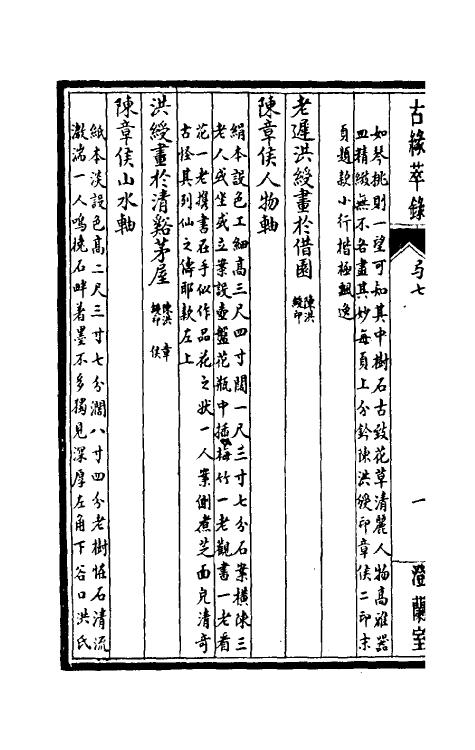 古緣萃錄
卷七
一
澄蘭室
如琴挑則一望可知其中樹石古致花草清麗人物高雅器
皿精緻無不各盡其妙每頁上分鈐陳洪綬印章侯二印末
頁題款小行楷極飄逸
老遲洪綬畫於借園 陳洪綬印
陳章侯人物軸
絹本設色工細高三尺四寸闊一尺三寸七分石案橫陳三
老人或坐或立案設壺盤花瓶中插梅竹一老觀書一老看
花一老撰書在手似作品花之狀一人案側煮芝面皃清奇
古怪其列仙之儔耶款左上
洪綬畫於清谿茅屋 陳洪綬印 章侯
陳章侯山水軸
紙本淡設色高二尺三寸七分濶八寸四分老樹恠石清流
激湍一人鳴橈石畔著墨不多獨見深厚左角下谷口洪氏